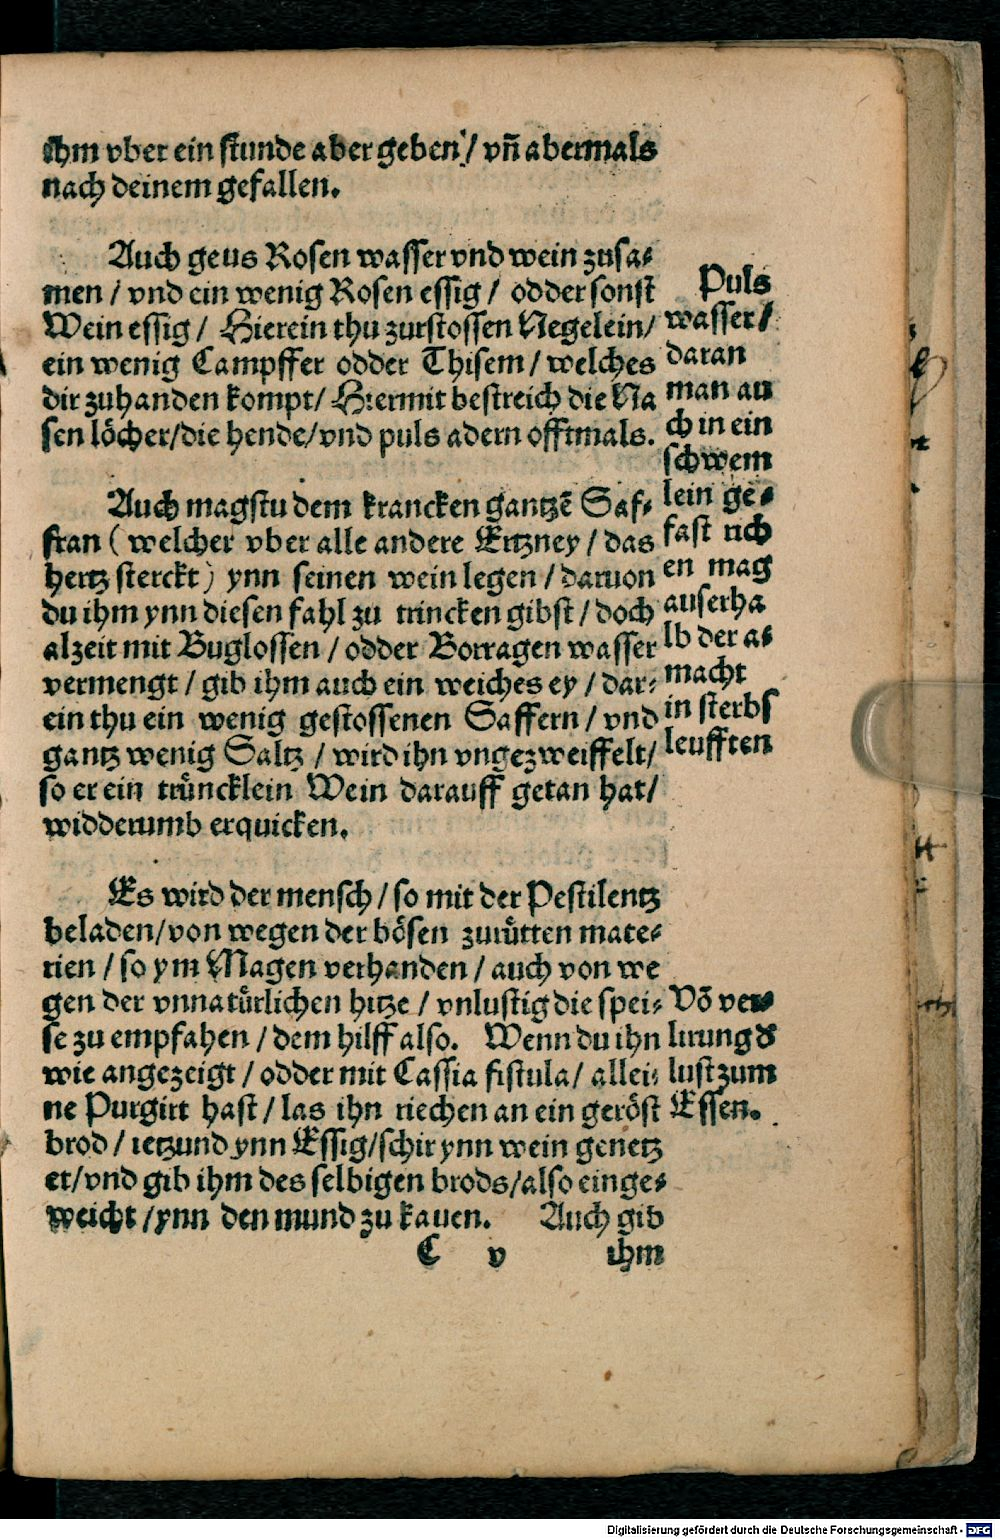 ihm vber ein stunde aber geben / vñ abermals
nach deinem gefallen.
Auch geus Rosen wasser vnd wein zusa-
men / vnd ein wenig Rosen essig / odder sonst
Wein essig / Hierein thu zurstossen Negelein /
ein wenig Campffer odder Thisem / welches
dir zuhanden kompt / Hiermit bestreich die Na
sen löcher / die hende / vnd puls adern offtmals.
Auch magstu dem krancken gantzē Saf-
fran ( welcher vber alle andere Ertzney / das
hertz sterckt ) ynn seinen wein legen / daruon
du ihm ynn diesen fahl zu trincken gibst / doch
alzeit mit Buglossen / odder Borragen wasser
vermengt / gib ihm auch ein weiches ey / dar-
ein thu ein wenig gestossenen Saffern / vnd
gantz wenig Saltz / wird ihn vngezweiffelt /
so er ein trüncklein Wein darauff getan hat /
widderumb erquicken.
Puls
wasser /
daran
man au
ch in ein
schwem
lein ge-
fast rich
en mag
auserha
lb der a-
macht
in sterbs
leufften
Es wird der mensch / so mit der Pestilentz
beladen / von wegen der bösen zurütten mate-
rien / so ym Magen verhanden / auch von we
gen der vnnatürlichen hitze / vnlustig die spei-
se zu empfahen / dem hilff also. Wenn du ihn
wie angezeigt / odder mit Cassia fistula / allei-
ne Purgirt hast / las ihn riechen an ein geröst
brod / ietzund ynn Essig / schir ynn wein genetz
et / vnd gib ihm des selbigen brods / also einge-
weicht / ynn den mund zu kauen. Auch gib
Võ ver-
lirung d
lust zum
Essen.
C v ihm
Digitalisierung gefördert durch die Deutsche Forschungsgemeinschaft - DFG